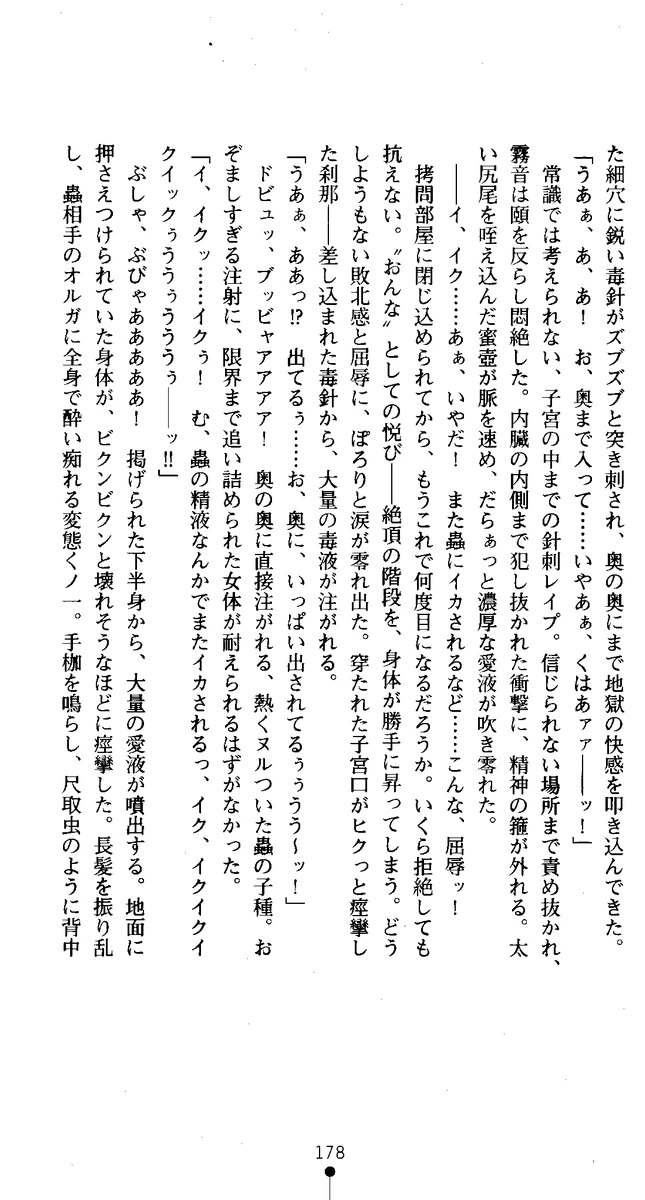 た細穴に鋭い毒針がズブズブと突き刺され、奥の奥にまで地獄の快感を叩き込んできた。
「うあぁ、あ、あ！　お、奥まで入って……いやあぁ、くはあァァ――ッ！」
　常識では考えられない、子宮の中までの針刺レイプ。信じられない場所まで責め抜かれ、
霧音は頤を反らし悶絶した。内臓の内側まで犯し抜かれた衝撃に、精神の箍が外れる。太
い尻尾を咥え込んだ蜜壺が脈を速め、だらぁっと濃厚な愛液が吹き零れた。
　――イ、イク……あぁ、いやだ！　また蟲にイカされるなど……こんな、屈辱ッ！
　拷問部屋に閉じ込められてから、もうこれで何度目になるだろうか。いくら拒絶しても
抗えない。〝おんな〟としての悦び――絶頂の階段を、身体が勝手に昇ってしまう。どう
しようもない敗北感と屈辱に、ぽろりと涙が零れ出た。穿たれた子宮口がヒクっと痙攣し
た刹那――差し込まれた毒針から、大量の毒液が注がれる。
「うあぁ、ああっ!?　出てるぅ……お、奥に、いっぱい出されてるぅぅうう〜ッ！」
　ドビュッ、ブッビャアアアア！　奥の奥に直接注がれる、熱くヌルついた蟲の子種。お
ぞましすぎる注射に、限界まで追い詰められた女体が耐えられるはずがなかった。
「イ、イクッ……イクぅ！　む、蟲の精液なんかでまたイカされるっ、イク、イクイクイ
クイックぅううぅうううぅ――ッ!!」
　ぶしゃ、ぶびゃあああああ！　掲げられた下半身から、大量の愛液が噴出する。地面に
押さえつけられていた身体が、ビクンビクンと壊れそうなほどに痙攣した。長髪を振り乱
し、蟲相手のオルガに全身で酔い痴れる変態くノ一。手枷を鳴らし、尺取虫のように背中
178